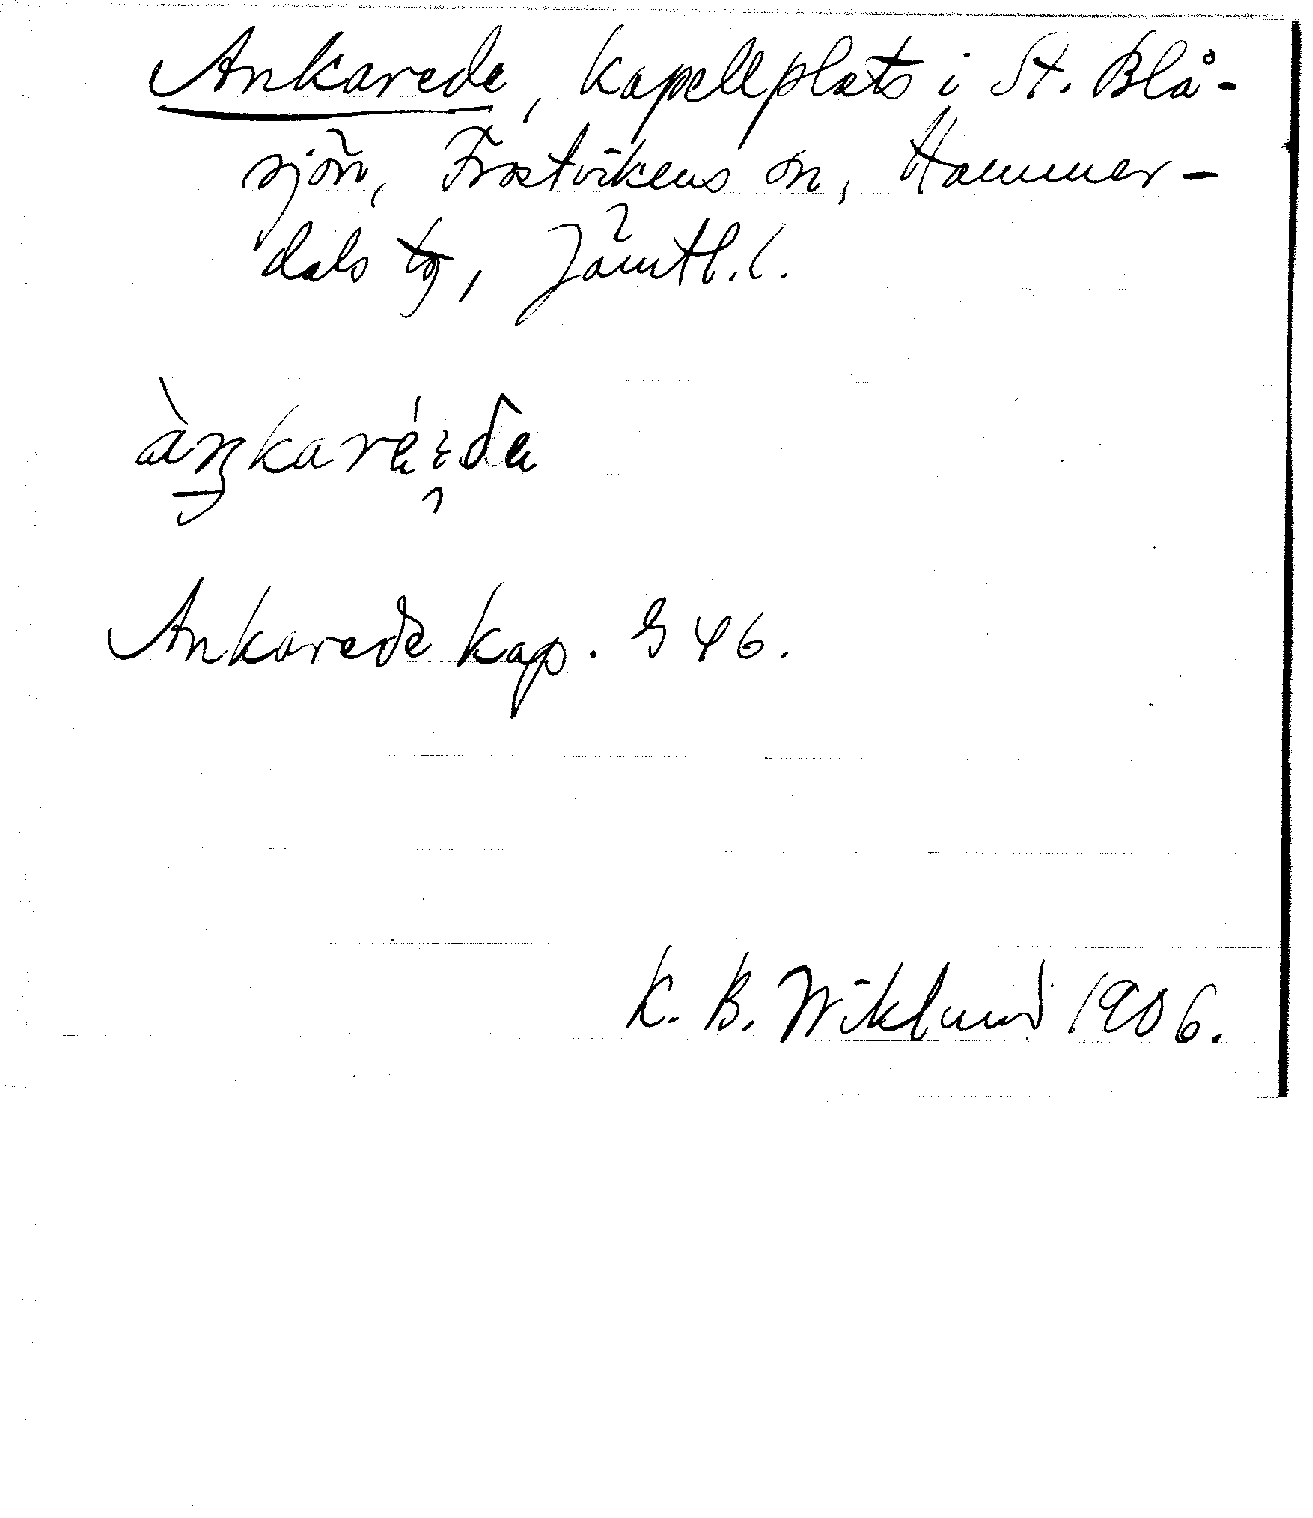 Ankarede, kapellplats i St. Blå-
sjön, Frostvikens sn, Hammer-
dals tg, Jämtl. l.
Ankarede kap. G 46.
K. B. Wiklund 1906.